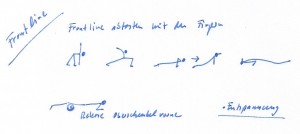 Frontline
Frontline abtasten mit den Fingern
Rolle Oberschenkel vorne
• Entspannung